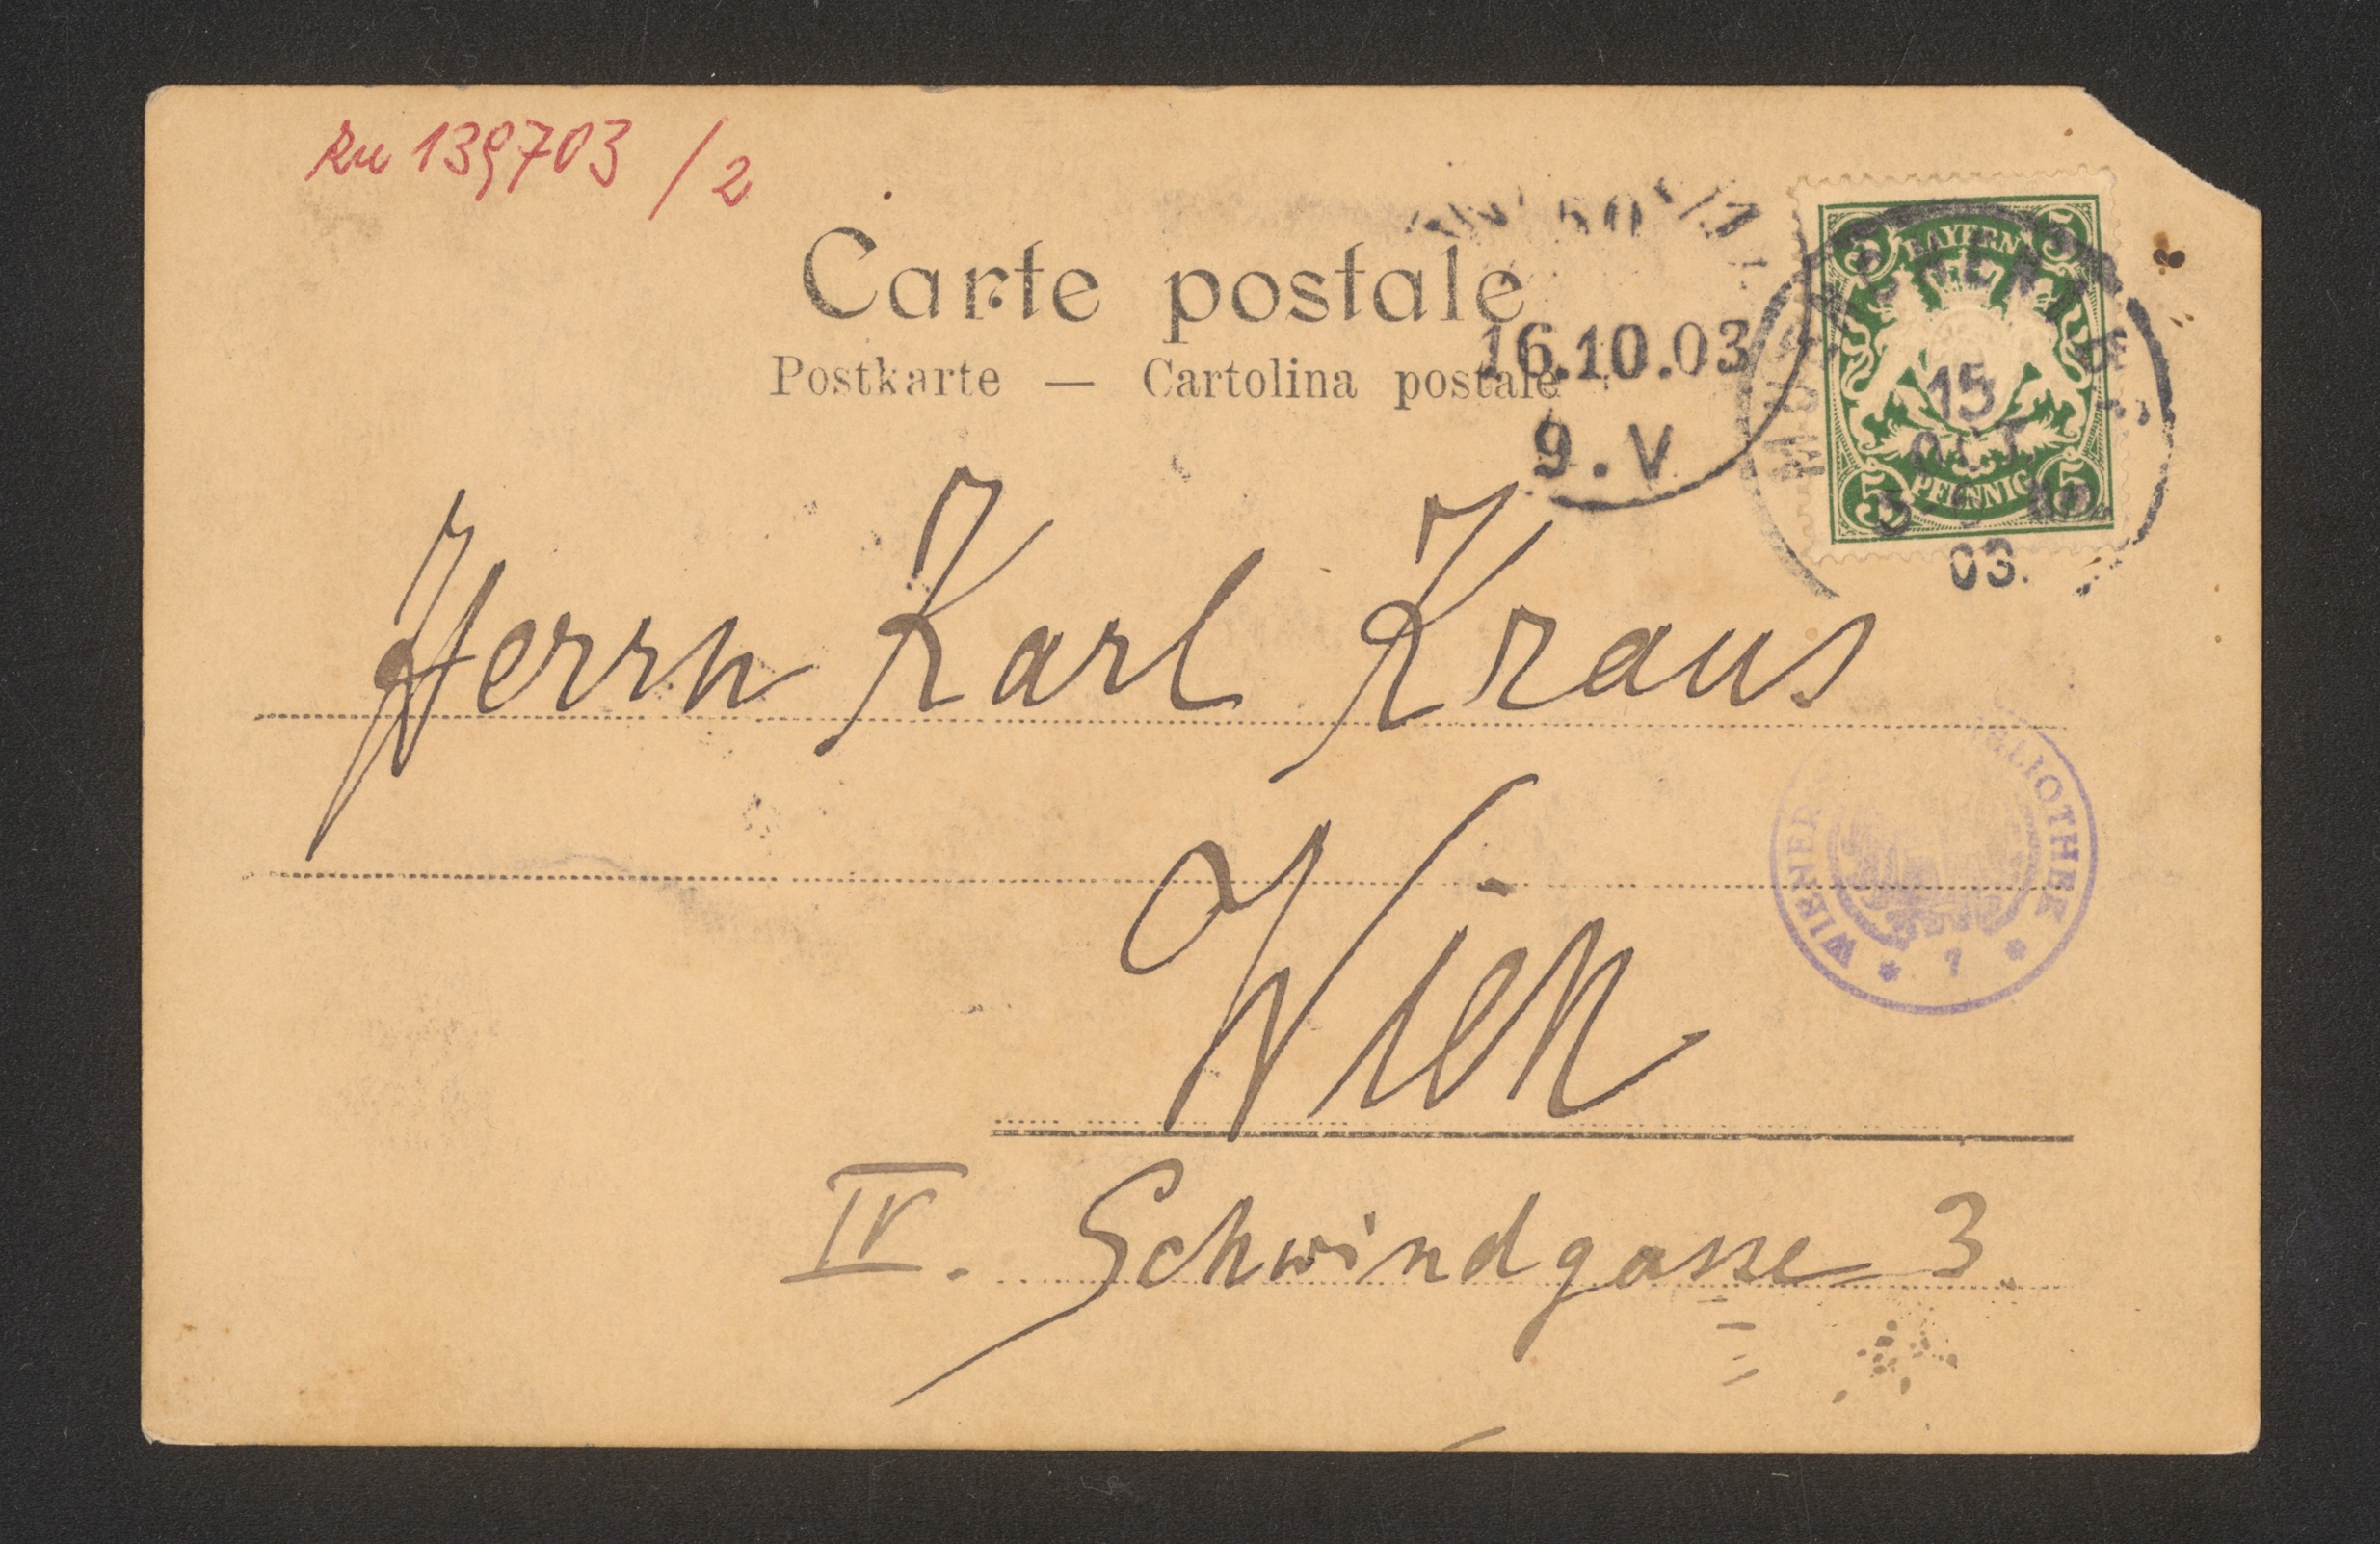 RN 139703 /2
Carte postale
Postkarte — Cartolina postale
16.10.03
9.V
BAYERN
5 5
15
OCT.
PFENNIG
5 5
03.
Herrn Karl Kraus
Wien
WIENER BIBLIOTHEK
* 7 *
IV. Schwindgasse 3.